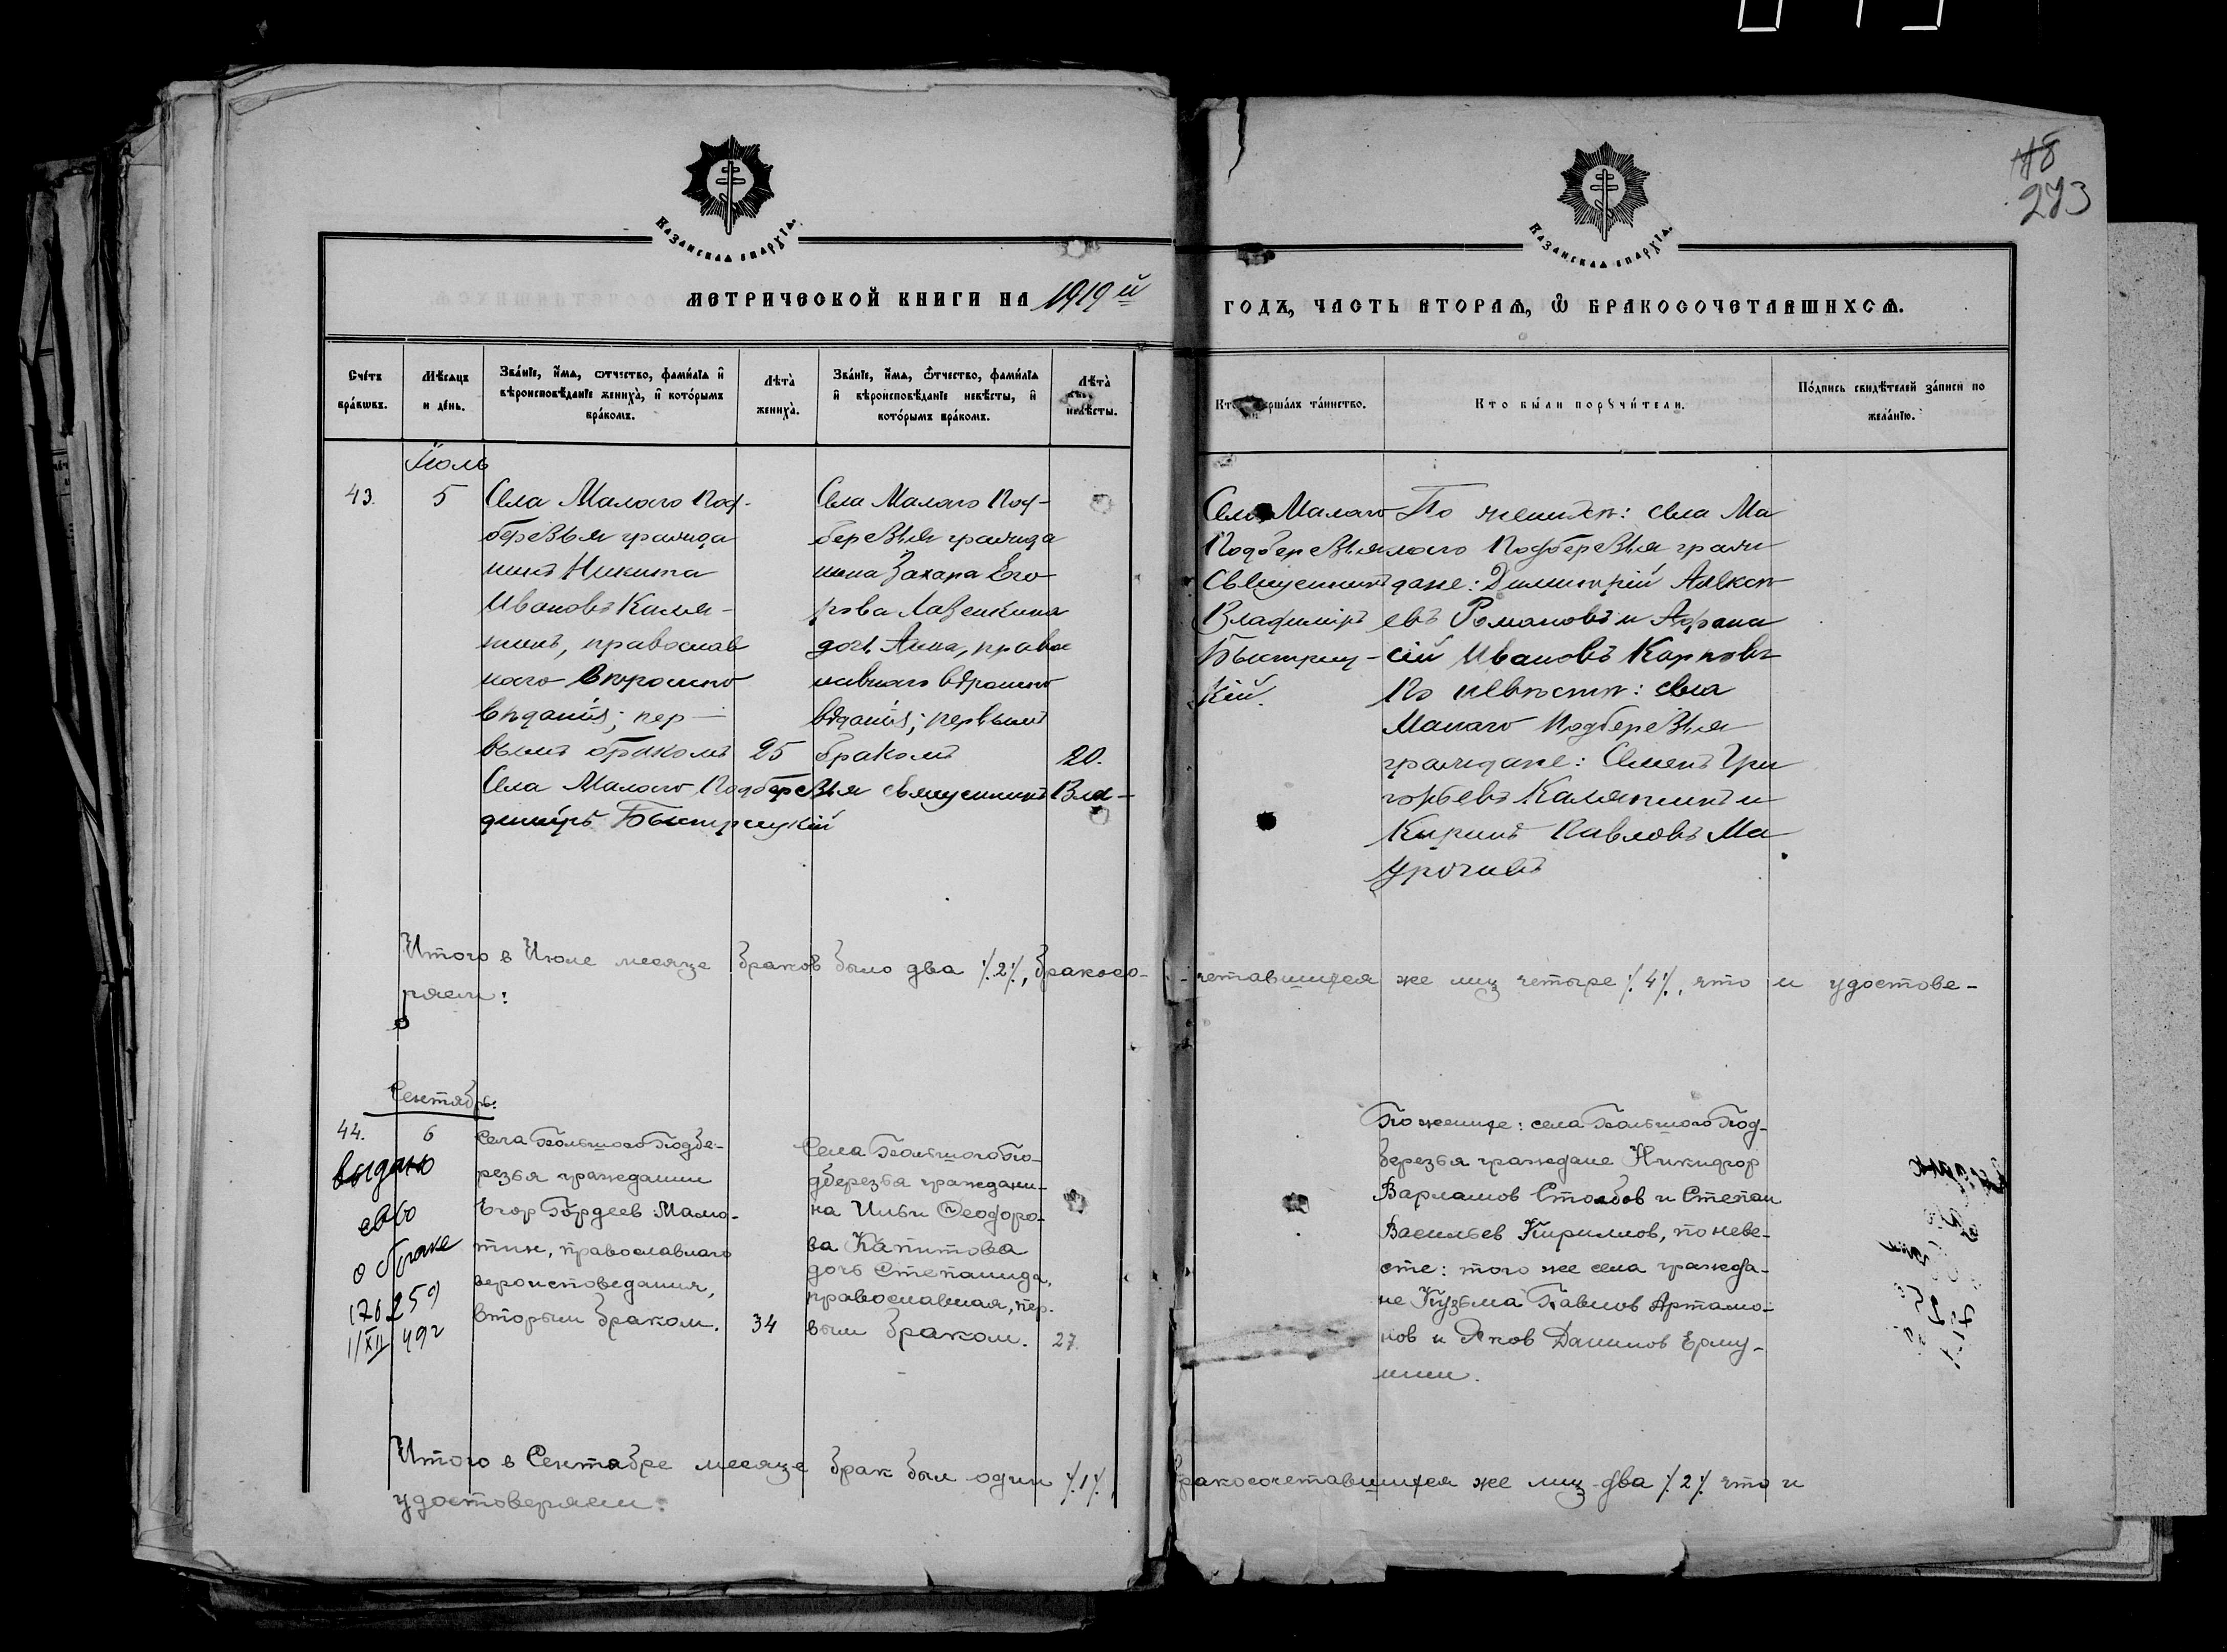 118
273
Казанская епархїа.
Казанская епархїа.
МЕТРИЧЕСКОЙ КНИГИ НА 1919й
ГОДЪ, ЧАСТЬ ВТОРАѦ, Ѿ БРАКОСОЧЕТАВШИХСѦ.
Сче́тъ бра́кѡвъ.
Мѣ́сяцъ и де́нь.
Зва́нїе, и́мѧ, ѻ́тчество, фами́лїѧ и вѣроисповѣ́данїе жениха̀, и кото́рымъ бра́комъ.
Лѣта̀ жениха̀.
Зва́нїе, и́мѧ, ѻ́тчество, фами́лїѧ и вѣроисповѣ́данїе невѣ́сты, и кото́рымъ бра́комъ.
Лѣта̀ невѣ́сты.
Кто̀ соверша́лъ та́инство.
Кто бы́ли порꙋчи́тели.
По́дпись свидѣ́телей за́писи по жела́нїю.
Іюль
43.
5
Села Малаго Под-
березья гражда
нинъ Никита
Ивановъ Каля-
нинъ, православ
наго вѣроиспо
вѣданія; пер-
вымъ бракомъ
25
Села Малаго Под-
березья гражда
нина Захара Его
рова Лазенкина
дочь Анна, право
славнаго вѣроиспо
вѣданія; первымъ
бракомъ
20.
Села Малаго Подберезья священникъ Вла-
диміръ Быстрицкій
Села Малаго
Подберезья
Священникъ
Владиміръ
Быстриц-
кій.
По женихѣ: села Ма
лаго Подберезья граж
дане: Димитрій Алексѣ
евъ Романовъ и Афана
сій Ивановъ Карповъ
По невѣстѣ: села
Малаго Подберезья
граждане: Семенъ Гри
горьевъ Каляпинъ и
Кирилъ Павловъ Ма
Итого в Июле месяце браков было два ⁒2⁒, бракосо-
четавшихся же лиц четыре ⁒4⁒, что и удостове-
ряем:
Сентябрь:
44.
6
выдано
св во
о браке
176259
1/XII 492
Села Большого Подбе-
резья гражданин
Егор Гордеев Мамо-
тин, православного
вероисповедания,
вторым браком.
34
Села Большого По-
дберезья граждани-
на Ильи Феодоро-
ва Капитова
дочь Степанида,
православная, пер-
вым браком.
27.
По женихе: села Большого Под-
березья граждане Никифор
Варламов Столбов и Степан
Васильев Кириллов, по неве-
сте: того же села гражда-
не Кузьма Павлов Артамо-
нов и Яков Данилов Ерму-
шин.
Итого в Сентябре месяце брак был один ⁒1⁒,
бракосочетавшихся же лиц два ⁒2⁒ что и
удостоверяем.